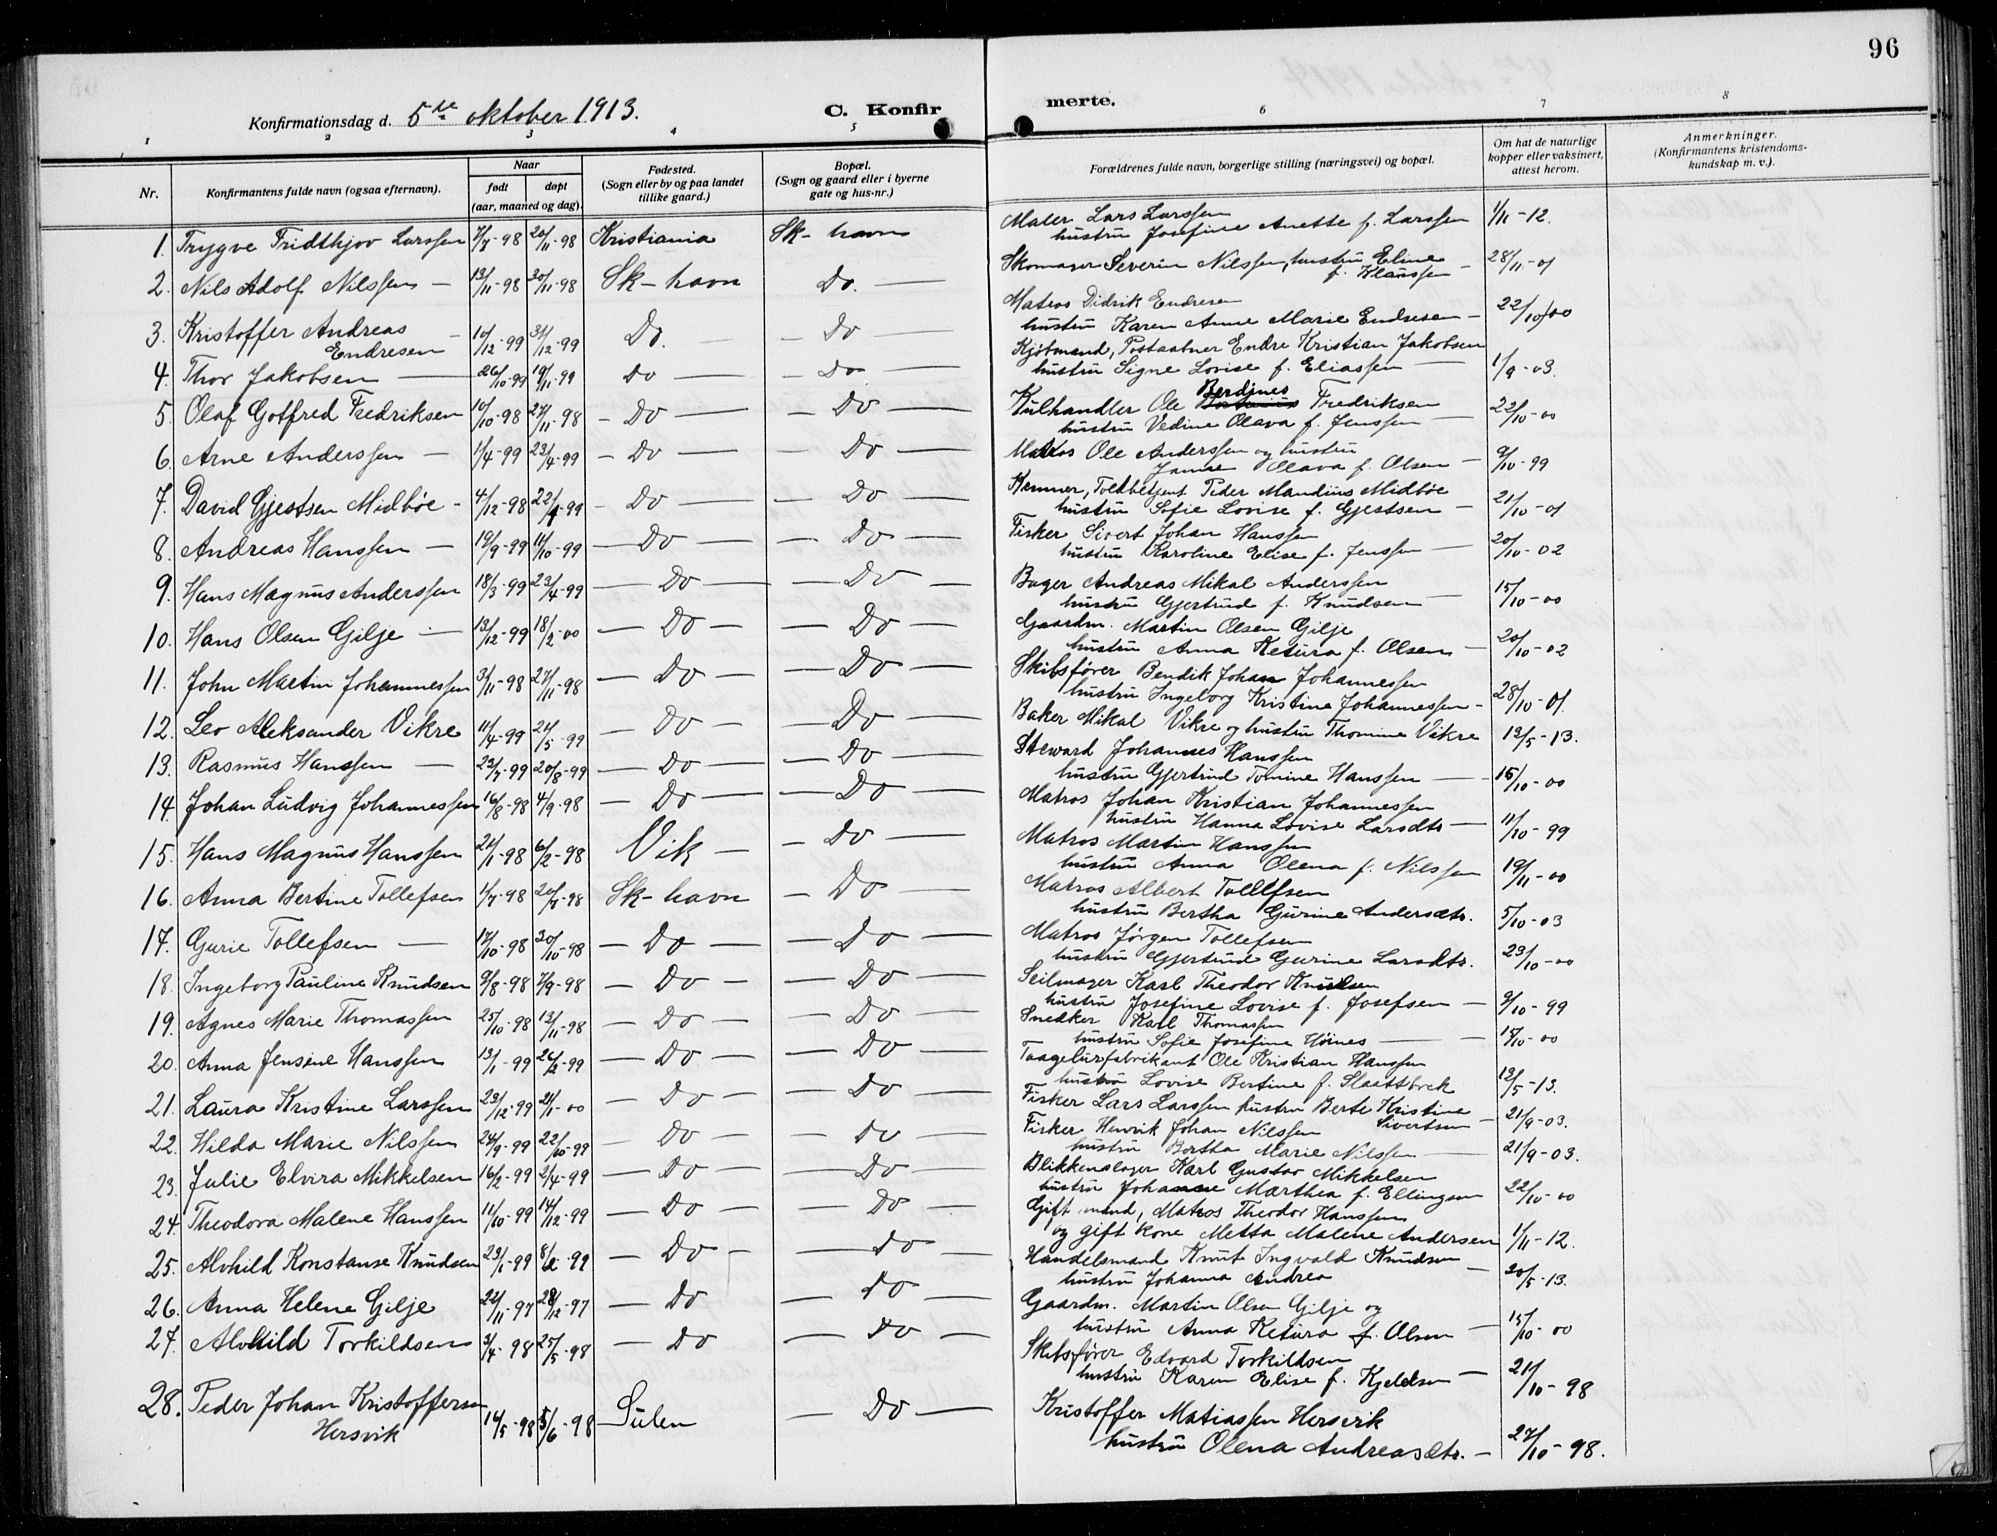 96
Konfirmationsdag d. 5te oktober 1913. C. Konfir merte.
1 2 3 4 5 6 7 8
Nr. Konfirmantens fulde navn (ogsaa efternavn). Naar født døpt (aar, maaned og dag). Fødested. (Sogn eller by og paa landet tillike gaard.) Bopæl. (Sogn og gaard eller i byerne gate og hus-nr.) Forældrenes fulde navn, borgerlige stilling (næringsvei) og bopæl. Om hat de naturlige kopper eller vaksinert, attest herom. Anmerkninger. (Konfirmantens kristendomskundskap m. v.).
1. Trygve Fridthjov Larssen 7/7-98 20/11-98 Kristiania Sk-havn Maler Lars Larssen
hustru Josefine Anette f. Larssen 1/11-12.
2. Nils Adolf Nilssen — 13/11-98 30/11-98 Sk-havn Do. — Skomager Severin Nilssen, hustru Eline
f. Klaussen — 28/11-01
3. Kristoffer Andreas Matros Didrik Endresen
Endresen — 10/12-99 31/12-99 Do. Do — hustru Karen Anne Marie Endresen — 22/10-00
4. Thor Jakobsen — 26/10-99 19/11-99 Do — Do — Kjøbmand, Postaabner Endre Kristian Jakobsen
hustru Signe Lovise f. Eliassen — 1/9-03.
5. Olaf Gotfred Fredriksen 10/10-98 27/11-98 - Do — - Do — Kulhandler Ole Berdines Fredriksen
hustru Vedine Olava f. Jenssen — 22/10-00
6. Arne Anderssen — 1/4-99 23/4-99 - Do — - Do — Matros Ole Anderssen og hustru
Janne Olava f. Olsen — 9/10-99
7. David Gjestsen Midbøe - 4/12-98 22/1-99 - Do — - Do — Kemner, Toldbetjent Peder Mandius Midbøe
hustru Sofie Lovise f. Gjestsen — 21/10-01
8. Andreas Hanssen — 19/9-99 11/10-99 — Do — — Do — Fisker Sivert Johan Hanssen
hustru Karoline Elise f. Jenssen — 20/10-02
9. Hans Magnus Anderssen 18/3-99 23/4-99 — Do — — Do — Bager Andreas Mikal Anderssen
hustru Gjertrud f. Knudsen — 15/10-00
10. Hans Olsen Gilje — 13/12-99 18/2-00 — Do — — Do — Gaardm. Martin Olsen Gilje
hustru Anna Retura f. Olsen — 20/10-02
11. John Martin Johannessen 3/11-98 27/11-98 — Do — — Do — Skibsfører Bendik Johan Johannessen
hustru Ingeborg Kristine Johannessen - 28/10-01.
12. Leo Aleksander Vikre 11/4-99 21/5-99 — Do — — Do — Baker Mikal Vikre og hustru Thomine Vikre 13/5-13.
13. Rasmus Hanssen — 23/7-99 20/8-99 — Do — — Do — Steward Johannes Hanssen
hustru Gjertrud Tomine Hanssen — 15/10-00
14. Johan Ludvig Johannessen 16/8-98 4/9-98 — Do — — Do — Matros Johan Kristian Johannessen
hustru Hanna Lovise Larsdtr — 11/10-99
15. Hans Magnus Hanssen 21/1-98 6/2-98 Vik — - Do — Matros Martin Hanssen
hustru Anna Olena f. Nilssen 19/11-00
16. Anna Bertine Tollefsen 1/7-98 20/7-98 Sk-havn - Do — Matros Albert Tollefsen
hustru Bertha Gurine Andersdtr. 5/10-03
17. Gurie Tollefsen — 17/10-98 30/10-98 — Do — — Do — Matros Jørgen Tollefsen
hustru Gjertrude Gurine Larsdtr. 23/10-00
18. Ingeborg Pauline Knudsen 9/8-98 7/9-98 — Do — — Do — Seilmager Karl Theodor Knudsen
hustru Josefine Lovise f. Josefsen — 9/10-99
19. Agnes Marie Thomassen 25/10-98 13/11-98 — Do — — Do — Snedker Karl Thomassen
hustru Sofie Josefine Höines — 15/10-00
20. Anna Jensine Hanssen 13/1-99 26/2-99 — Do — — Do — Taagelurfabrikant Ole Kristian Hanssen
hustru Lovise Bertine f. Slaattbrek 13/5-13.
21. Laura Kristine Larssen 23/12-99 21/1-00 — Do — — Do — Fisker Lars Larssen hustru Berte Kristine
Sivertsen — 21/9-03.
22. Hilda Marie Nilssen 24/9-99 22/10-99 — Do — — Do — Fisker Henrik Johan Nilssen
hustru Bertha Marie Nilssen — 21/9-03.
23. Julie Elvira Mikkelsen 16/2-99 2/4-99 — Do — — Do — Blikkenslager Karl Gustav Mikkelsen
hustru Johanne Marthea f. Ellingsen 22/10-00
24. Theodora Malene Hanssen 11/10-99 14/12-99 — Do — — Do — Gift mand, Matros Theodor Hanssen
og gift kone Metta Malene Andersen 1/11-12.
25. Alvhild Konstanse Knudsen 23/1-99 8/2-99 — Do — — Do — Handelsmand Knut Ingvald Knudsen —
hustru Johanna Andrea 20/5-13.
26. Anna Helene Gilje 22/11-97 28/12-97 — Do — Do — Gaardm. Martin Olsen Gilje og
hustru Anna Retura f. Olsen — 15/10-00
27. Alvhild Torkildsen 3/4-98 25/5-98 — Do — Do — Skibsfører Edvard Torkildsen
hustru Karen Elise f. Kjeldsen — 21/10-98
28. Peder Johan Kristoffersen Kristoffer Matiassen Hersvik
Hersvik 14/5-98 5/6-98 Sulen — Do — hustru Olena Andreasdtr. — 27/10-98.